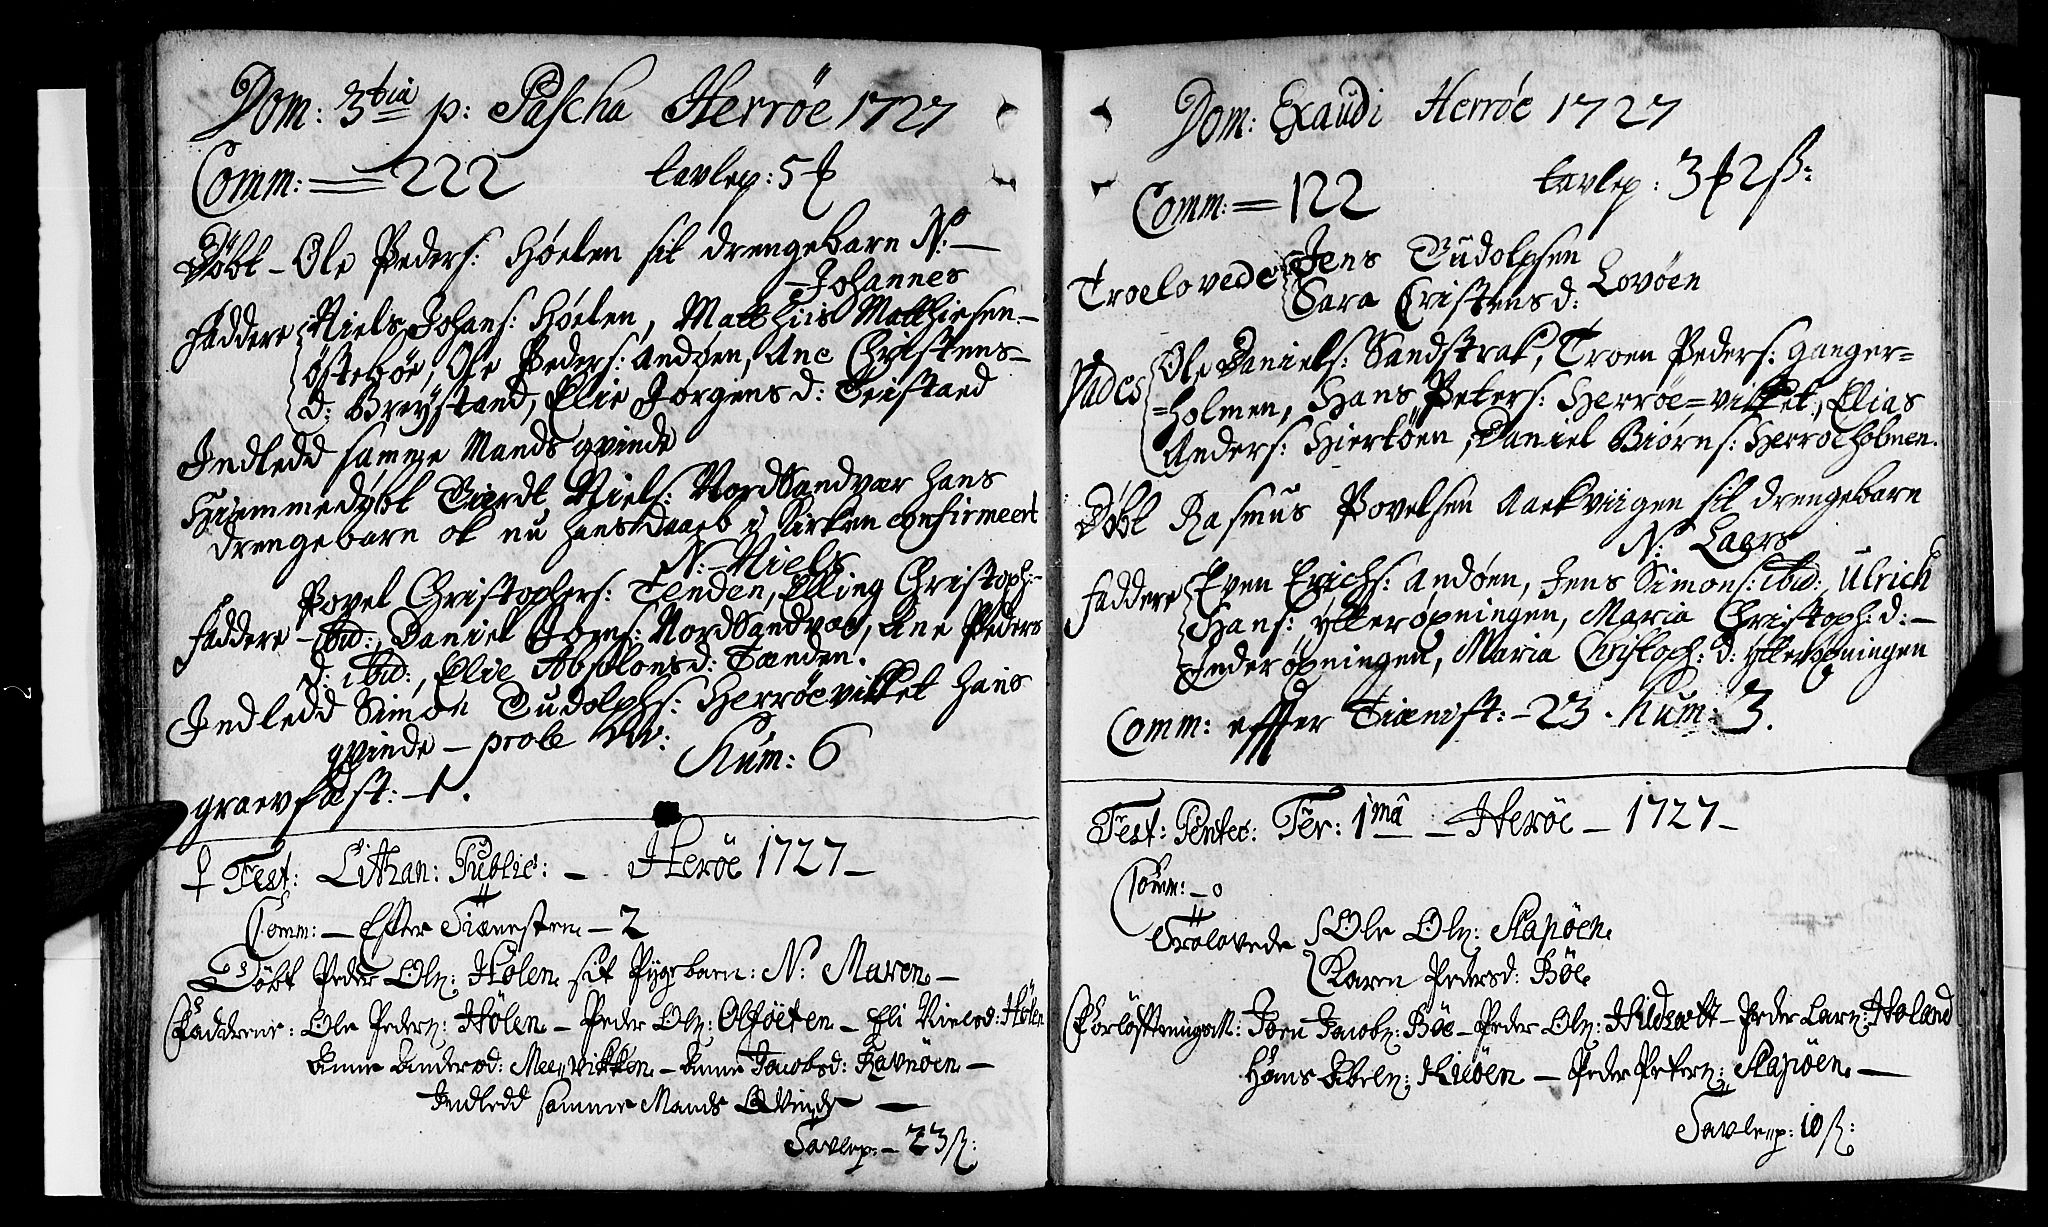 Dom: 3tia p: Pascha Herröe 1727
Comm: = 222 tavlep: 5
Döbt - Ole Peders: Höelen sit drengebarn N: —
Johannes
Faddere Niels Johans: Höelen, Matthiis Matthiesen
östeböe, Ole Peders: Andøen, Ane Christens-
d: Breystand, Elie Jørgens d: Teistaed
Indledd samme Mands qvinde
Hiemmedøbt Tiørdt Niels: Nordsandvar hans
drengebarn ok nu hans daab i Kirken confirmeert
N: Niels
Povel Christophers: Tenden, Elling Christoph:-
Faddere - ibid:, Daniel Joens: Nordsandvar, Ane Peders
d: ibid:, Elie Absolons d: Tænden.
Indledd Simon Tudolphs: Herröevikket hans
qvinde - prole
Num: 6
graevfæst: - 1.
Fest: Lithan: Public: - Heröe 1727 -
Comm: - Efter Tienesten - 2
Döbt Peder Ols: Hölen sit Pygebarn: N: Maren -
Faddrene: Ole Peders: Hölen - Peder Ols: Olföeten - Eli Nielsd: Hölen
Anne Andersd: Meevikken - Anne Jacobsd: Havnöen -
Indledd samme Mands Qvinde —
Tavlep: - 23 ß:
Dom: Exaudi Herröe 1727
Comm: = 122 tavlep: 3 2 ß:
Troelovede Jens Tudolphsen
Sara Cristens d: Lovöen
Vades Ole Daniels: Sandstrak, Troen Peders: Ganger=
=holmen, Hans Peters: Herröe=vikket, Elias
Anders: Hiertöen, Daniel Biørns: Herröeholmen.
Döbt Rasmus Povelsen Aakviigen sit drengebarn
N: Laers
Faddere Even Erichs: Andøen, Jens Simons: ibid:, Ulrich
Hans: ytteröpningen, Maria Christoph: d: -
Inderöpningen, Maria Christoph: d: ytteröpningen
Comm: effter Tienist: - 23. Num: 3.
Fest: Pentec: Fer: 1mâ - Heröe - 1727 -
Comm: - 0
Trolovede Ole Ols: Slapöen
Karen Pedersd: Böe
Forlöftningsm: Joen Jacobs: Böe - Peder Ols: Hildsætt - Peder Lars: Høland
Hans Abels: Hiöen - Peder Peters: Slapöen —
Tavlep: 10 ß: